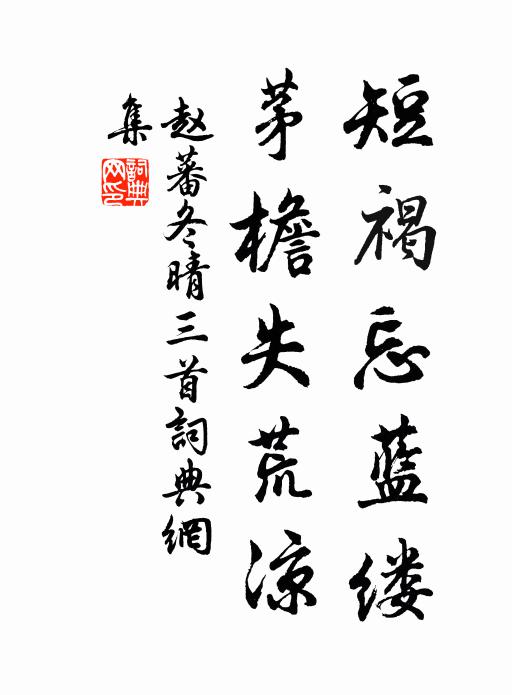 短褐忘蓝缕
茅檐失荒凉
赵蕃冬晴三首詞典網
集
詞典
网印